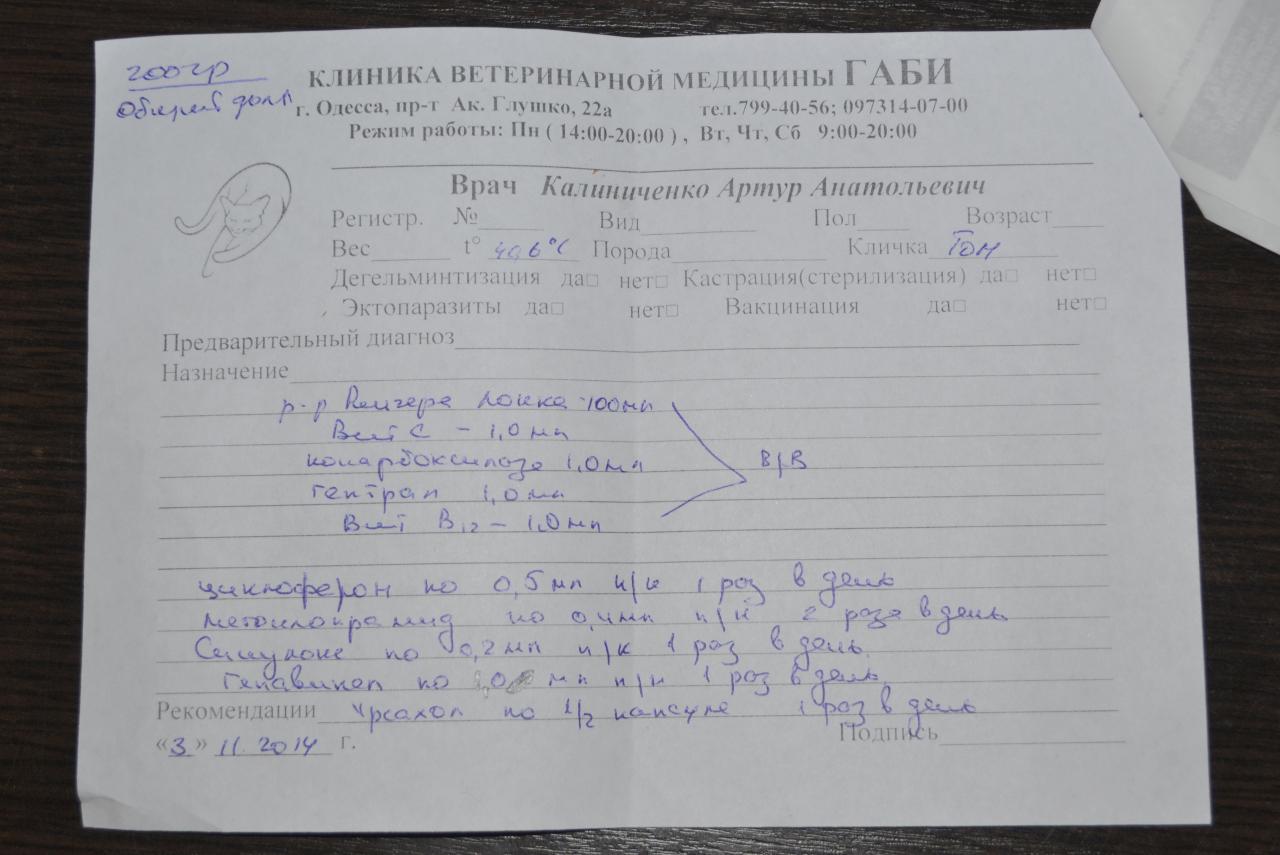 200гр
Общий долг
КЛИНИКА ВЕТЕРИНАРНОЙ МЕДИЦИНЫ ГАБИ
г. Одесса, пр-т Ак. Глушко, 22а тел.799-40-56; 097314-07-00
Режим работы: Пн ( 14:00-20:00 ) , Вт, Чт, Сб 9:00-20:00
Врач Калиниченко Артур Анатольевич
Регистр. № Вид Пол Возраст
Вес t° 40,6°C Порода Кличка Том
Дегельминтизация да□ нет□ Кастрация(стерилизация) да□ нет□
Эктопаразиты да□ нет□ Вакцинация да□ нет□
Предварительный диагноз
Назначение
р-р Рингера Локка 100мл
Вит C – 1,0 мл
кокарбоксилаза 1,0мл в/в
гептрал 1,0мл
Вит B12 – 1,0мл
циклоферон по 0,5мл п/к 1 раз в день
метоклопрамид по 0,4мл п/к 2 раза в день
по 0,2мл п/к 1 раз в день
Гепавикел по мл п/к 1 раз в день
Рекомендации Урсахол по 1/2 капсуле 1 раз в день
«3» 11. 2014 г. Подпись